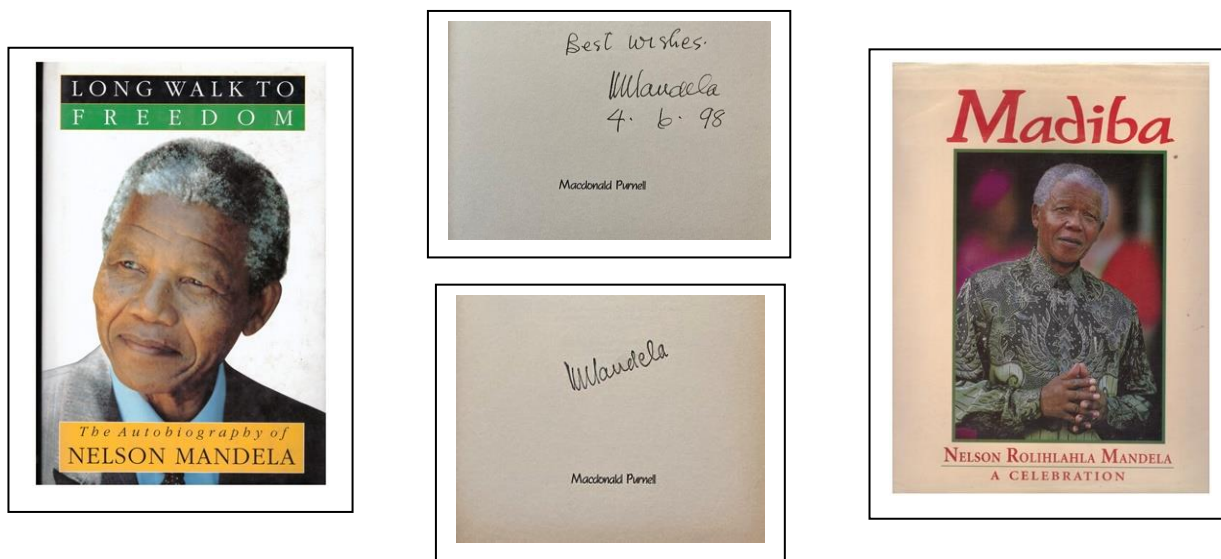 LONG WALK TO
FREEDOM
The Autobiography of
NELSON MANDELA
Best wishes.
NMandela
4. 6. 98
Macdonald Purnell
NMandela
Macdonald Purnell
Madiba
NELSON ROLIHLAHLA MANDELA
A CELEBRATION